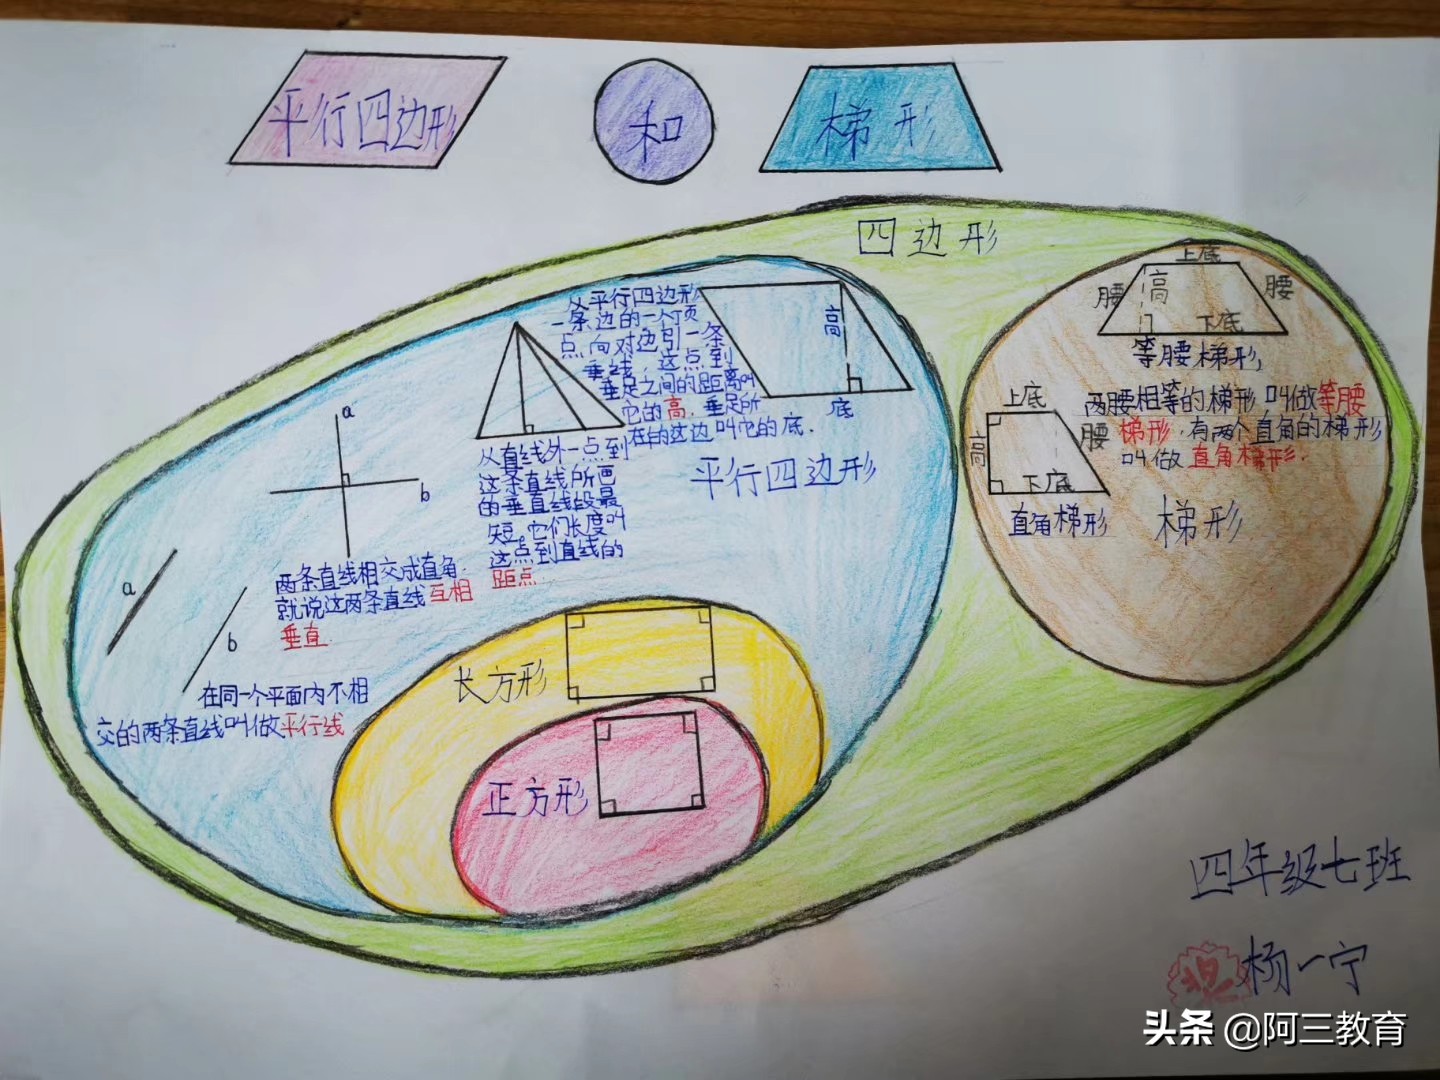 平行四边形
和
梯形
四边形
从平行四边形
一条边的一个顶
点,向对边引一条
垂线,这点到
垂足之间的距离叫
它的高.垂足所
在的这边叫它的底.
高
底
平行四边形
从直线外一点到
这条直线所画
的垂直线段最
短,它们长度叫
这点到直线的
距点
a
b
两条直线相交成直角.
就说这两条直线互相
垂直
a
b
在同一个平面内不相
交的两条直线叫做平行线
长方形
正方形
上底
腰
高
腰
下底
等腰梯形,
两腰相等的梯形叫做等腰
梯形.有两个直角的梯形
叫做直角梯形.
上底
高
腰
下底
直角梯形
梯形
四年级七班
杨一宁
头条 @阿三教育